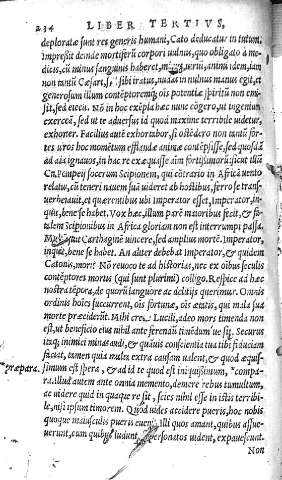 234 LIBER TERTIVS,
deploratæ sunt res generis humani, Cato deducatur in tutum.
Impressit deinde mortiferũ corpori vulnus, quo obligato à me-
dicis, cũ minus sanguinis haberet, minus virium, animi idem, iam
non tantũ Cæsari, sibi iratus, nudas in vulnus manus egit, et
generosum illum contẽptoremq; ois potentiæ spiritũ non emi-
sit, sed eiecit. Nõ in hoc exẽpla hæc nunc cõgero, ut ingenium
exerceã, sed ut te aduersus id quod maxime terribile uidetur,
exhorter. Facilius autẽ exhortabor, si ostẽdero non tantũ for-
tes uiros hoc momẽtum efflandæ animæ contẽpsisse, sed quosdã
ad alia ignauos, in hac re æquasse aïm fortissimorũ: sicut illũ
Cn. Pompeij socerum Scipionem, qui cõtrario in Africã uento
relatus, cũ teneri nauem suã uideret ab hostibus, ferro se trans-
uerberauit, et quærentibus ubi Imperator esset, Imperator, in-
quit, bene se habet. Vox hæc, illum parẽ maioribus fecit, & fa-
talem Scipionibus in Africa gloriam non est interrumpi passa.
Multũ fuit Carthaginẽ uincere, sed amplius mortẽ. Imperator,
inquit, bene se habet. An aliter debebat Imperator, & quidem
Catonis, mori? Nõ reuoco te ad historias, nec ex oibus seculis
contẽptores mortis (qui sunt plurimi) colligo. Respice ad hæc
nostra tẽpora, de quorũ languore ac delitijs querimur. Omnis
ordinis hoïes succurrent, oïs fortunæ, oïs ætatis, qui mala sua
morte præciderũt. Mihi crede Lucili, adeo mors timenda non
est, ut beneficio eius nihil ante ferenũ timẽdum sit. Securus
itaq; inimici minas audi, & quãuis conscientia tua tibi fiduciam
faciat, tamen quia multa extra causam ualent, & quod æquis-
præpara. simum est spera, & ad id te quod est iniquissimũ, *compa-
ra. illud autem ante omnia memento, demere rebus tumultum,
ac uidere quid in quaque re sit, scies nihil esse in istis terribi-
le, nisi ipsum timorem. Quod uides accidere pueris, hoc nobis
quoque maiusculis pueris euenit. Illi quos amant, quibus assue-
uerunt, cum quibus ludunt, si personatos uident, expauescunt.
Non